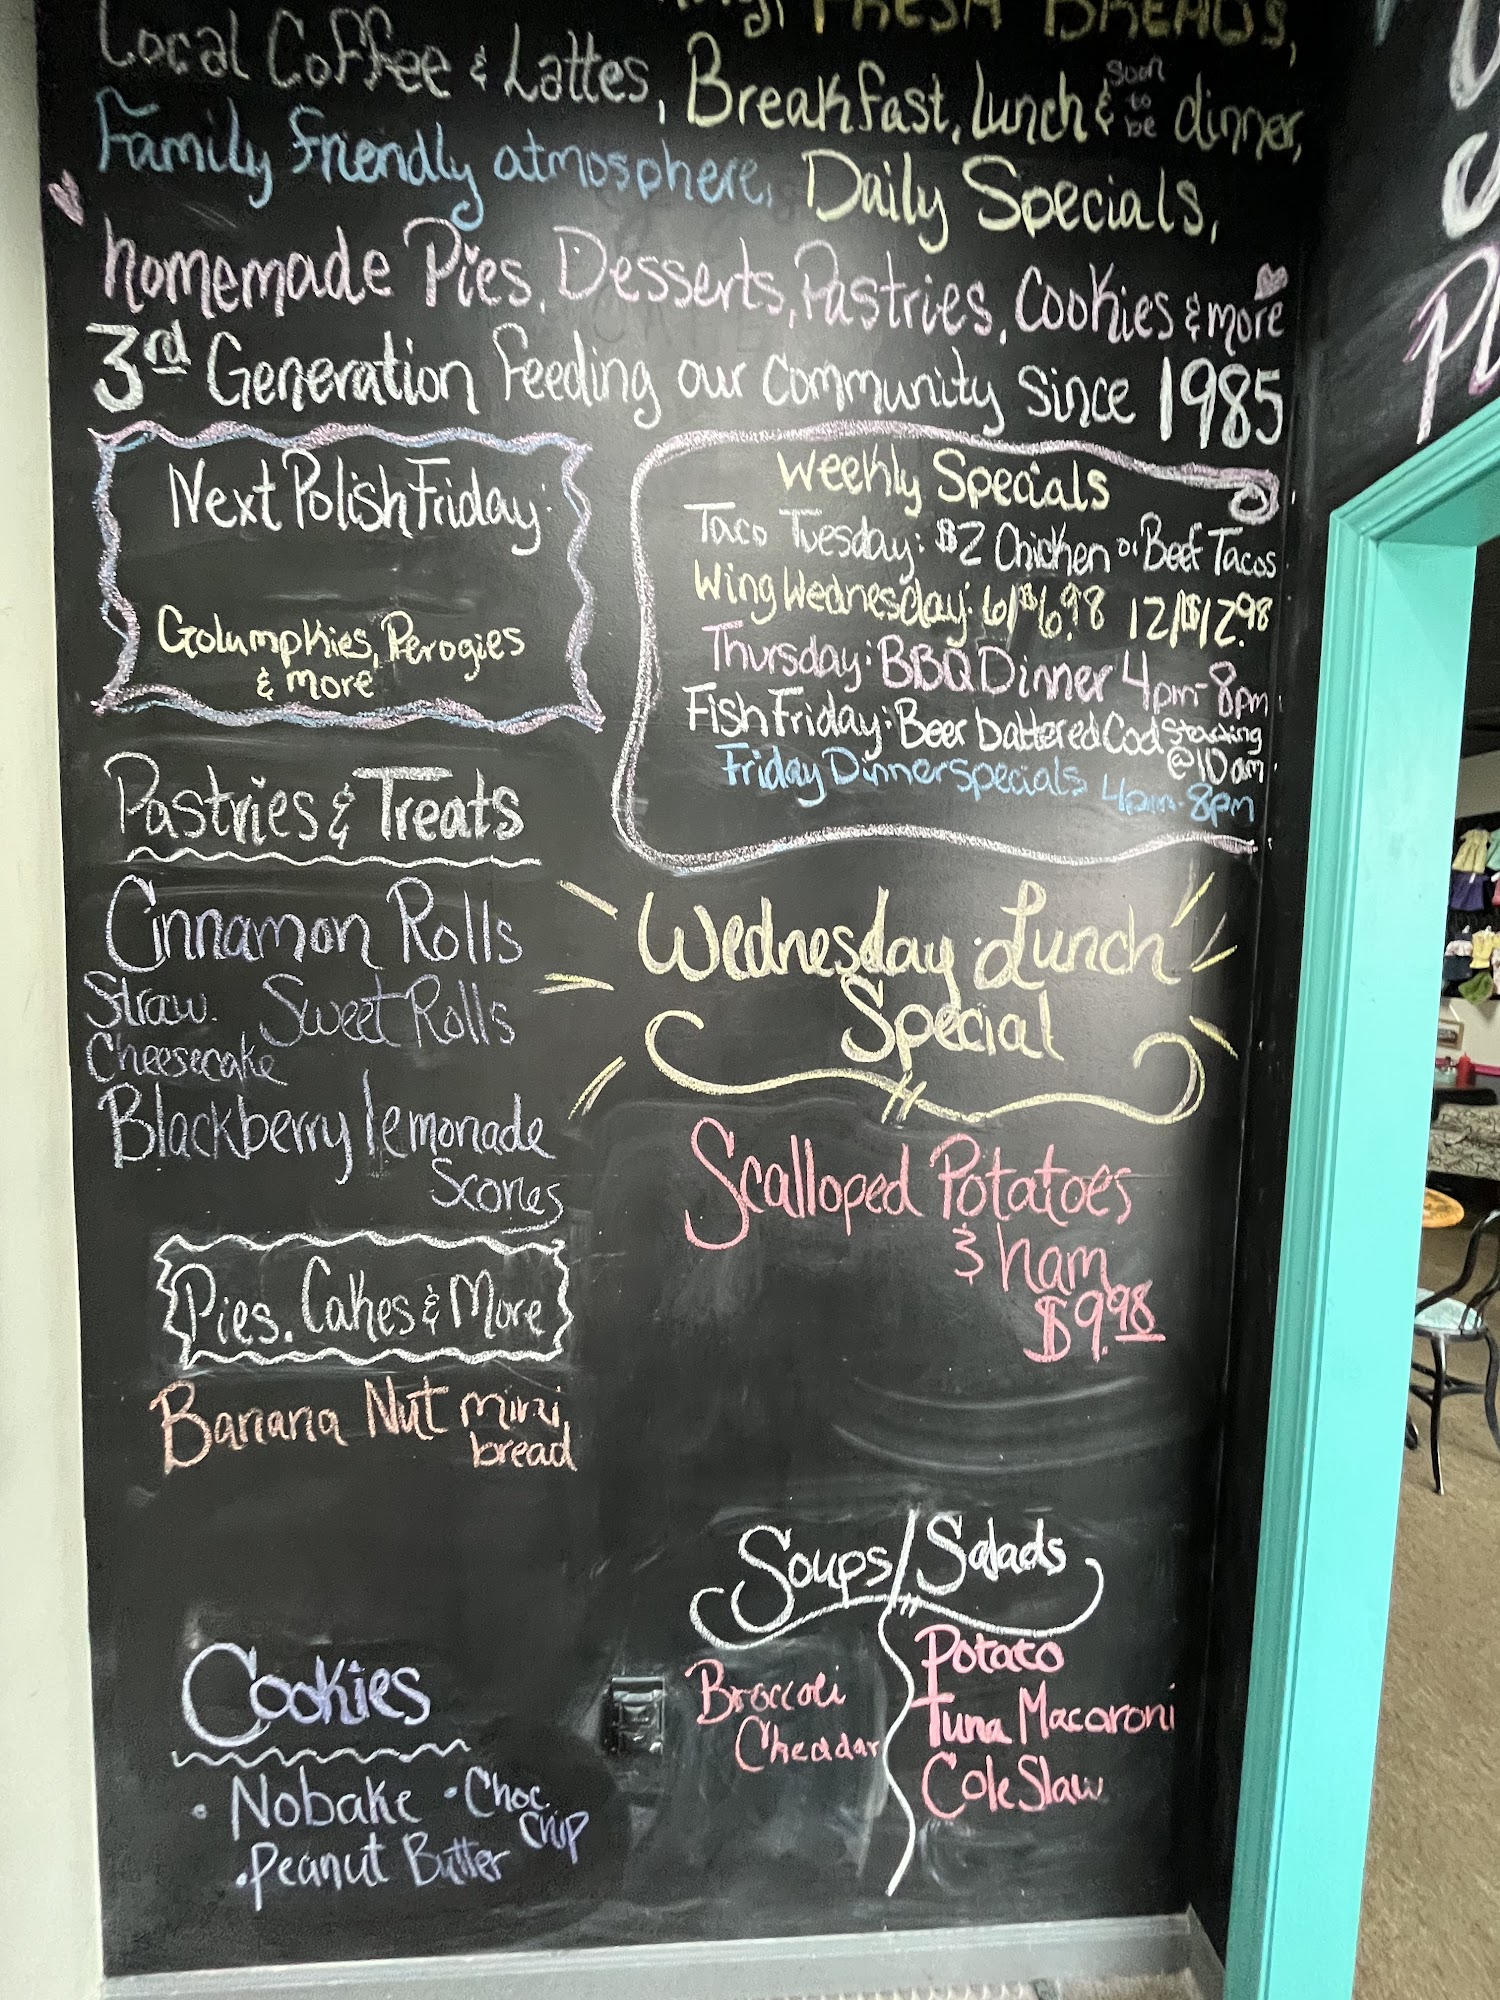 FRESH BREADS,
Local Coffee & Lattes, Breakfast, Lunch & soon to be dinner,
Family friendly atmosphere, Daily Specials,
homemade Pies, Desserts, Pastries, Cookies & more
3rd Generation feeding our community since 1985
Next Polish Friday:
Golumpkies, Perogies
& more
Weekly Specials
Taco Tuesday: $2 Chicken or Beef Tacos
Wing Wednesday: 6/$6.98 12/$12.98
Thursday: BBQ Dinner 4pm-8pm
Fish Friday: Beer battered Cod Starting
@10am
Friday Dinner specials 4pm-8pm
Pastries & Treats
Cinnamon Rolls
Straw. Cheesecake Sweet Rolls
Blackberry lemonade
Scones
Pies, Cakes & More
Banana Nut mini
bread
Cookies
• Nobake • Choc Chip
• Peanut Butter
Wednesday Lunch
Special
Scalloped Potatoes
& ham
$9.98
Soups/Salads
Broccoli
Cheddar
Potato
Tuna Macaroni
Cole Slaw